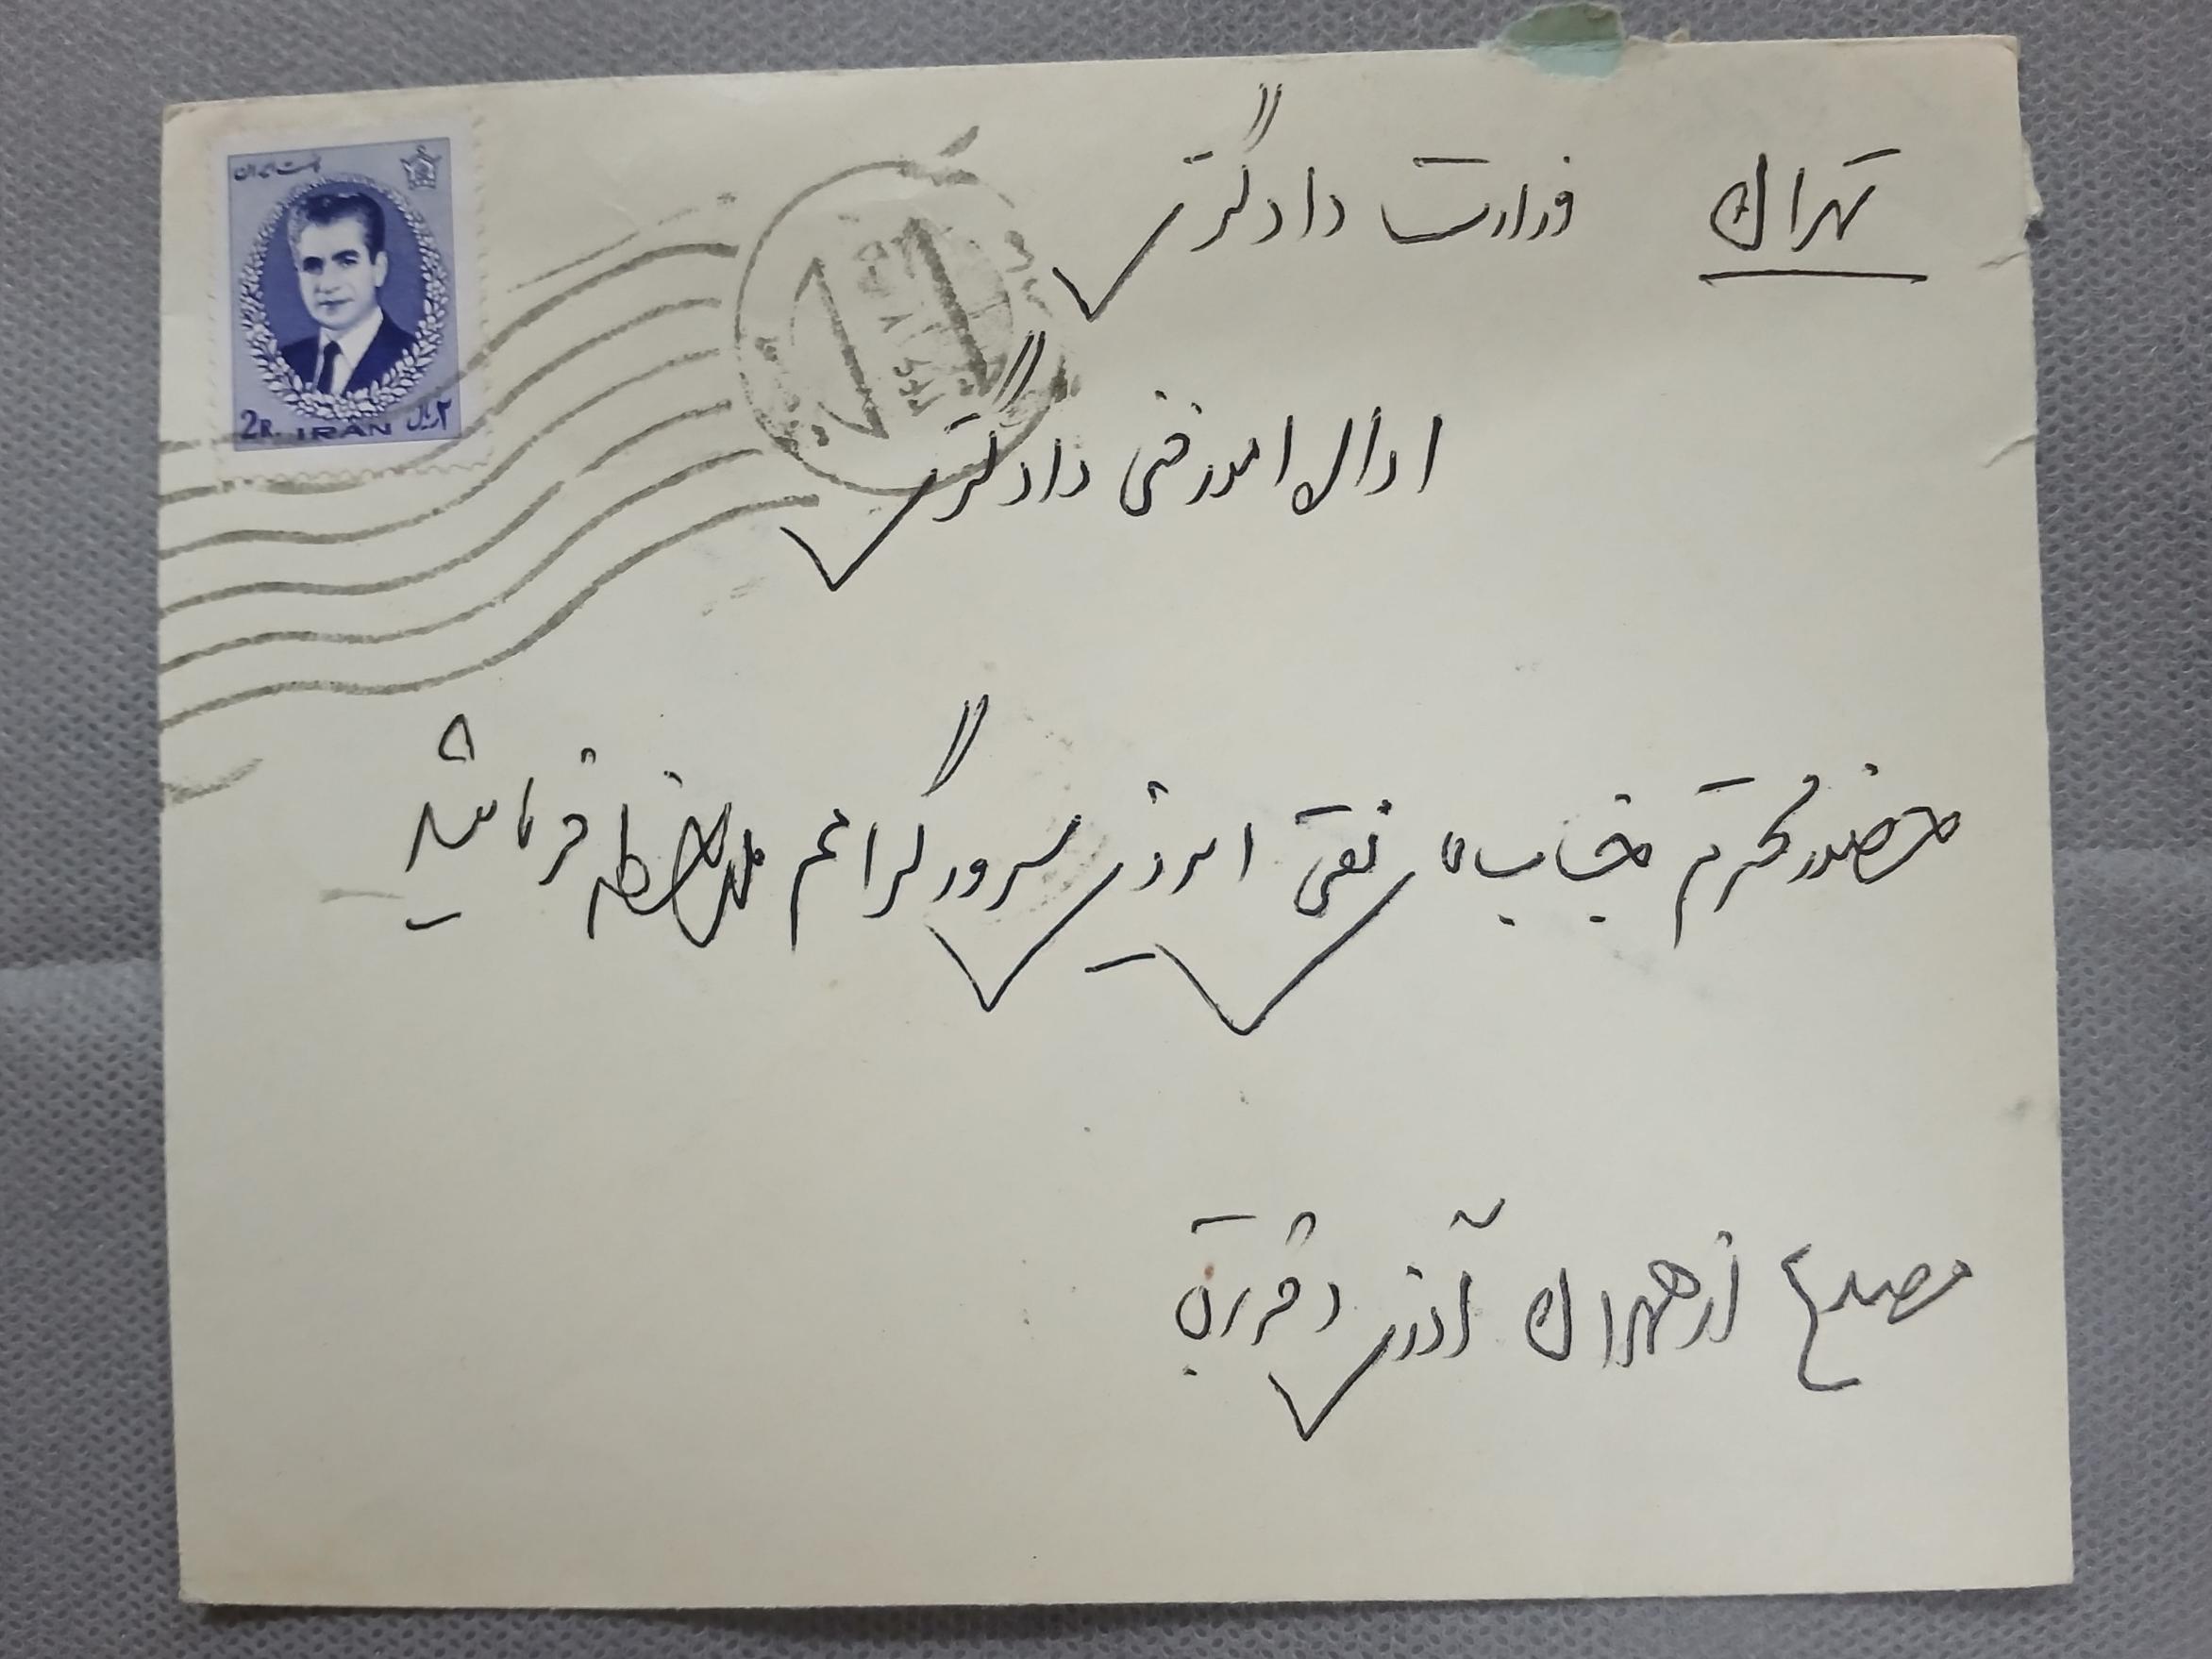 پست ایران
2R. IRAN ۲ ریال
تهران وزارت دادگستری
اداره امور فنی دادگستری
حضور محترم جناب آقای تقی سرور گرامم ملاحظه فرمائید
مصدع از تهران آذری